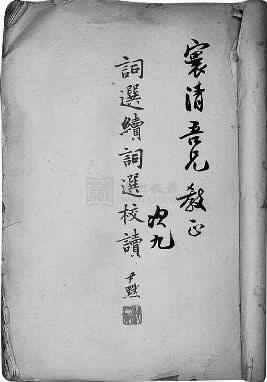 寰清吾兄教正
次九
詞選續詞選校讀
尹默